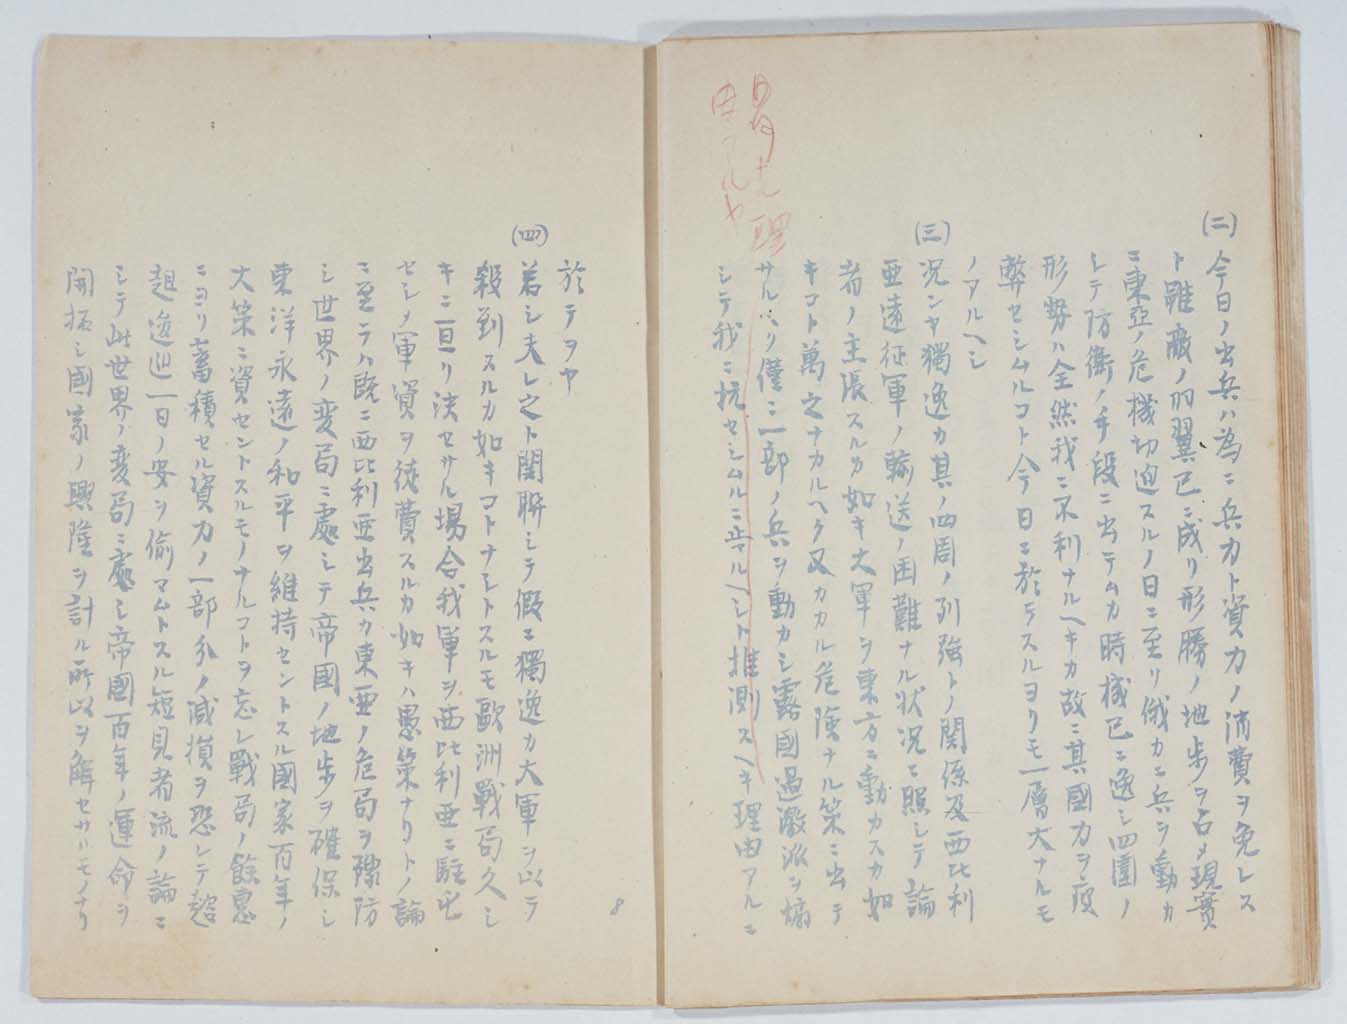 (二)
今日ノ出兵ハ為ニ兵力ト資力ノ消費ヲ免レス
ト雖敵ノ羽翼已ニ成リ形勝ノ地歩ヲ占メ現實
ニ東亞ノ危機切迫スルノ日ニ至リ俄カニ兵ヲ動カ
シテ防衛ノ手段ニ出テムカ時機已ニ逸シ四圍ノ
形勢ハ全然我ニ不利ナルヘキカ故ニ其國力ヲ疲
弊セシムルコト今日ニ於テスルヨリモ一層大ナルモ
ノアルヘシ
(三)
況ンヤ獨逸カ其ノ四周ノ列強トノ関係及西比利
亜遠征軍ノ輸送ノ困難ナル状況ニ照シテ論
者ノ主張スルカ如キ大軍ヲ東方ニ動カスカ如
キコト萬之ナカルヘク又カカル危険ナル策ニ出テ
サルハク僅ニ一部ノ兵ヲ動カシ露國過激派ヲ煽
シテ我ニ抗セシムルニ止マルヘシト推測スヘキ理由アルニ
於テヲヤ
(四)
若シ夫レ之ト関聯シテ假ニ獨逸カ大軍ヲ以テ
殺到スルカ如キコトナシトスルモ歐洲戰局久シ
キニ亘リ決セサル場合我軍ヲ西比利亜ニ駐屯
セシメ軍資ヲ徒費スルカ如キハ愚策ナリトノ論
ニ至テハ既ニ西比利亜出兵カ東亜ノ危局ヲ豫防
シ世界ノ変局ニ處シテ帝國ノ地歩ヲ確保シ
東洋永遠ノ和平ヲ維持セントスル國家百年ノ
大策ニ資セントスルモノナルコトヲ忘レ戰局ノ餘惠
ニヨリ蓄積セル資力ノ一部分ノ減損ヲ恐レテ趑
趄逡巡一日ノ安ヲ偷マムトスル短見者流ノ論ニ
シテ此世界ノ変局ニ處シ帝國百年ノ運命ヲ
開拓シ國家ノ興隆ヲ計ル所以ヲ解セサルモノナリ
8